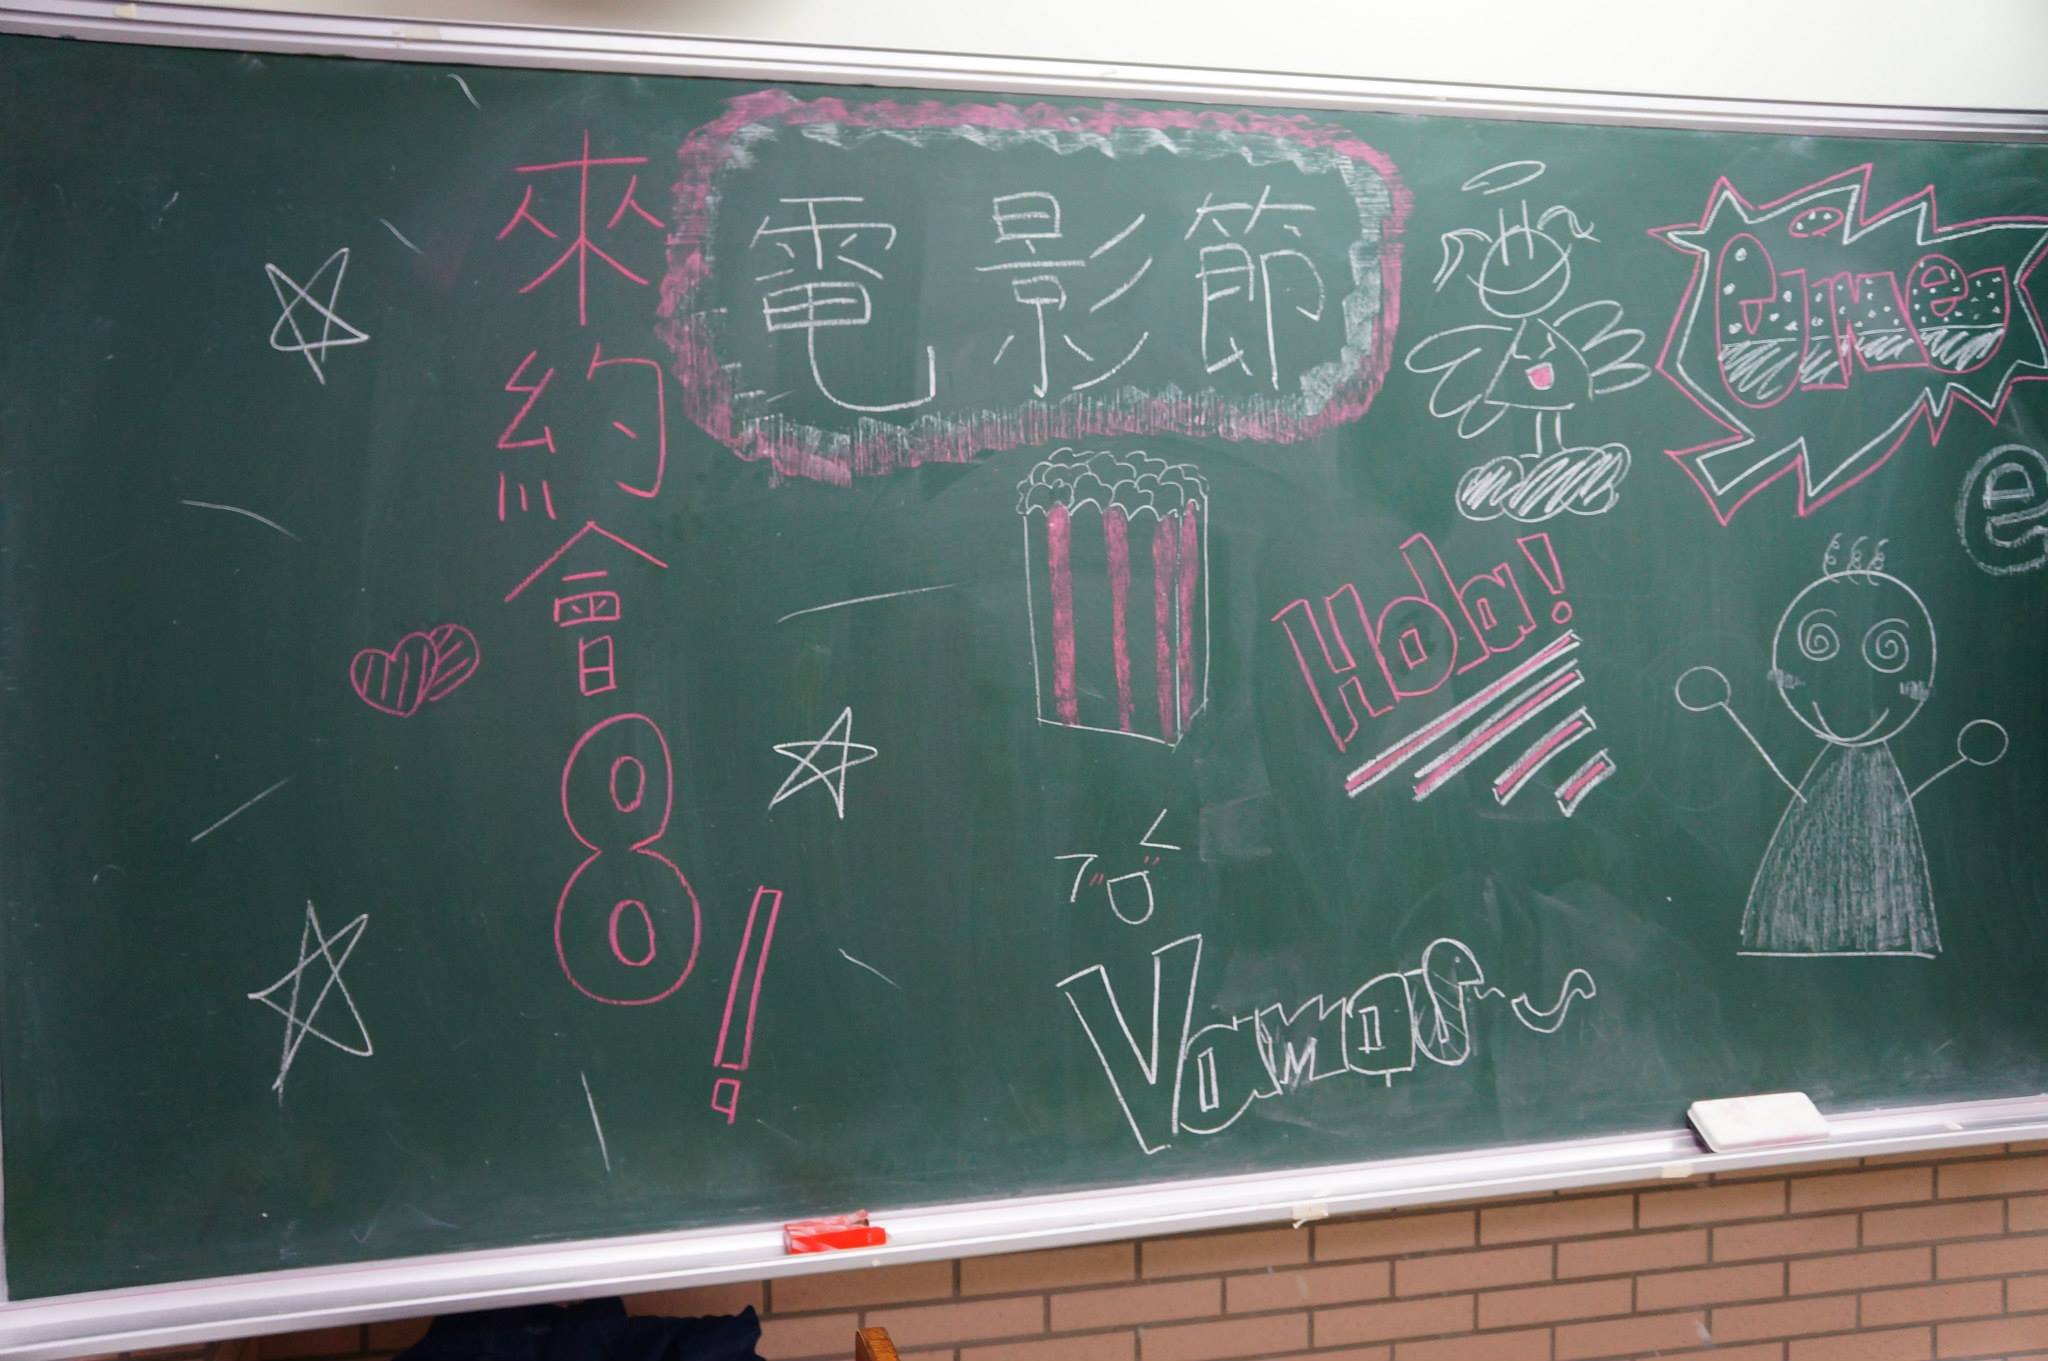 來約會8!
電影節
cine
Hola!
Vamos~
e